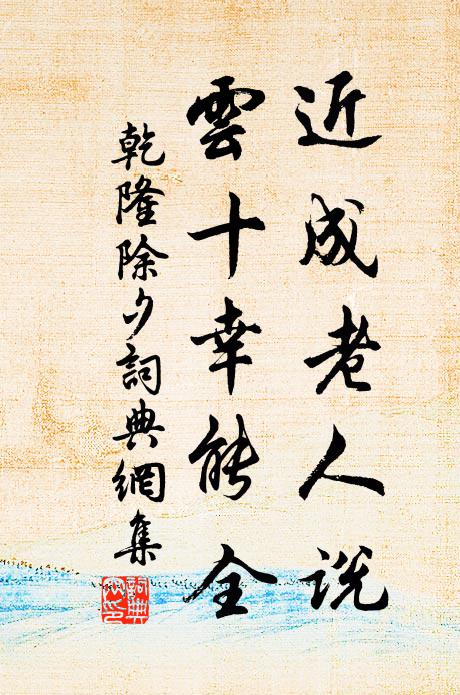 近成老人説
雲十幸能全
乾隆除夕詞典網集